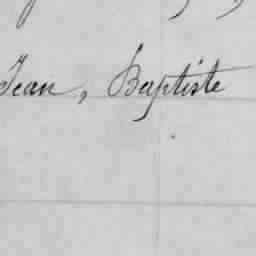 Jean, Baptiste